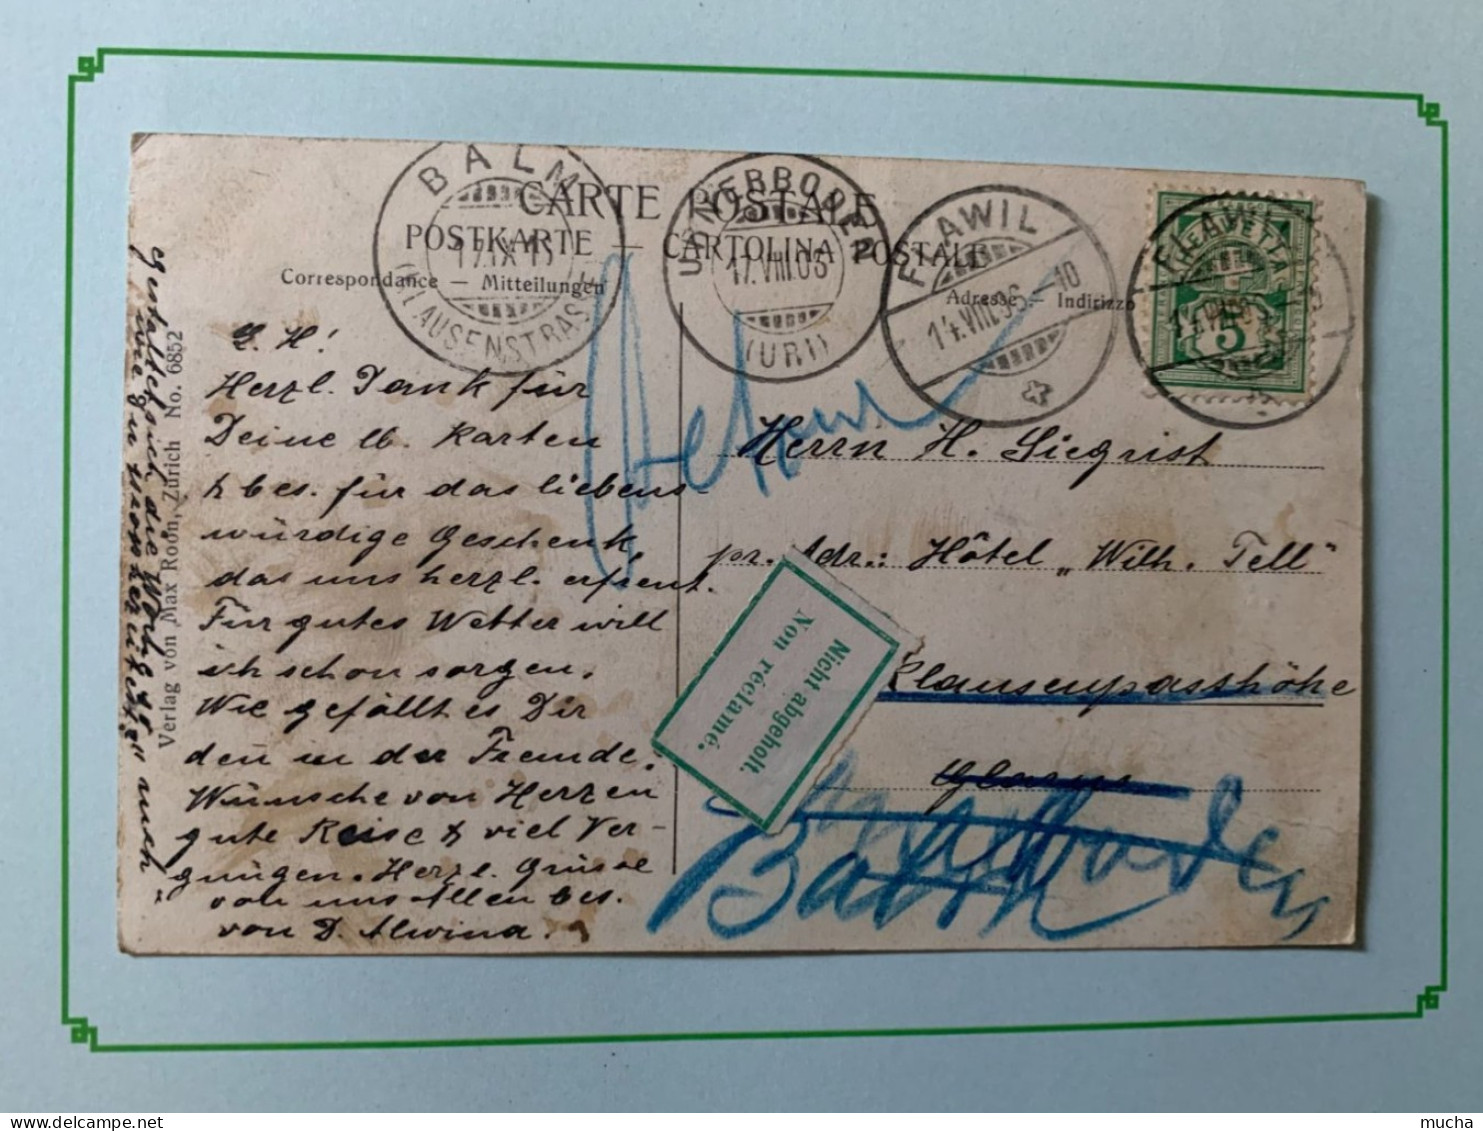 CARTE POSTALE
POSTKARTE — CARTOLINA POSTALE
Correspondance — Mitteilungen
Adresse — Indirizzo
BALM
(KLAUSENSTRASSE)
URNERBODEN
17.VIII.06
(URI)
FLAWIL
14.VIII.06.–10
FLAWIL
HELVETIA
5
L. H!
Herzl. Dank für
Deine lb. Karten
& bes. für das liebens-
würdige Geschenk,
das uns herzl. erfreut.
Für gutes Wetter will
ich schon sorgen.
Wie gefällt es Dir
denn in der Fremde.
Wünsche von Herzen
gute Reise & viel Ver-
gnügen. Herzl. Grüsse
von uns Allen bes.
von D. Alwina.
Retour
Herrn H. Siegrist
pr. Adr.: Hôtel „Wilh. Tell"
Klausenpasshöhe
Glarus
Nicht abgeholt.
Non réclamé.
Balm
Verlag von Max Roon, Zürich No. 6852